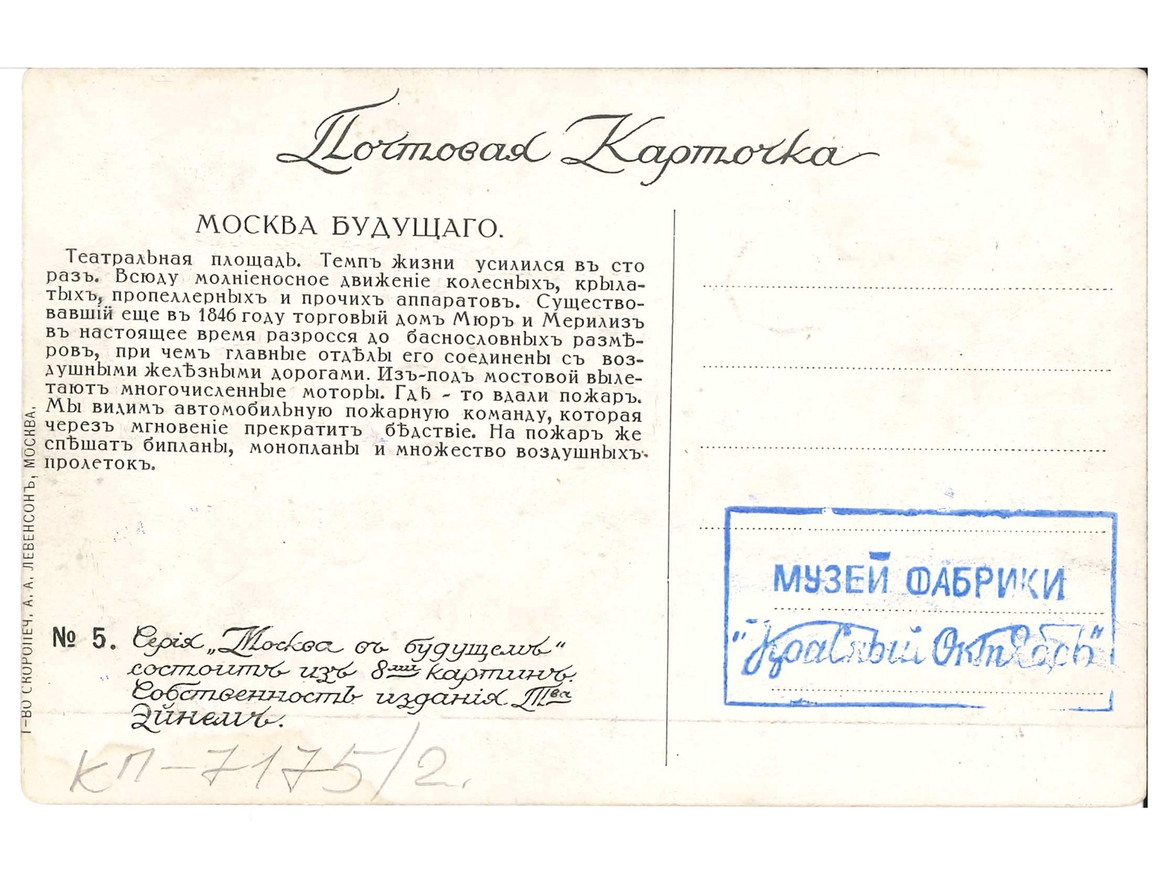 Почтовая Карточка
МОСКВА БУДУЩАГО.
Театральная площадь. Темпъ жизни усилился въ сто
разъ. Всюду молніеносное движеніе колесныхъ, крыла-
тыхъ, пропеллерныхъ и прочихъ аппаратовъ. Существо-
вавшій еще въ 1846 году торговый домъ Мюръ и Мерилизъ
въ настоящее время разросся до баснословныхъ размѣ-
ровъ, при чемъ главные отдѣлы его соединены съ воз-
душными желѣзными дорогами. Изъ-подъ мостовой выле-
таютъ многочисленные моторы. Гдѣ - то вдали пожаръ.
Мы видимъ автомобильную пожарную команду, которая
черезъ мгновеніе прекратитъ бѣдствіе. На пожаръ же
спѣшатъ бипланы, монопланы и множество воздушныхъ
пролетокъ.
Т-ВО СКОРОПЕЧ. А. А. ЛЕВЕНСОНЪ, МОСКВА.
№ 5. Серія „Москва въ будущемъ“
состоитъ изъ 8ми картинъ.
Собственность изданія Т-ва
Эйнемъ.
КП-7175/2.
МУЗЕЙ ФАБРИКИ
"Красный Октябрь"